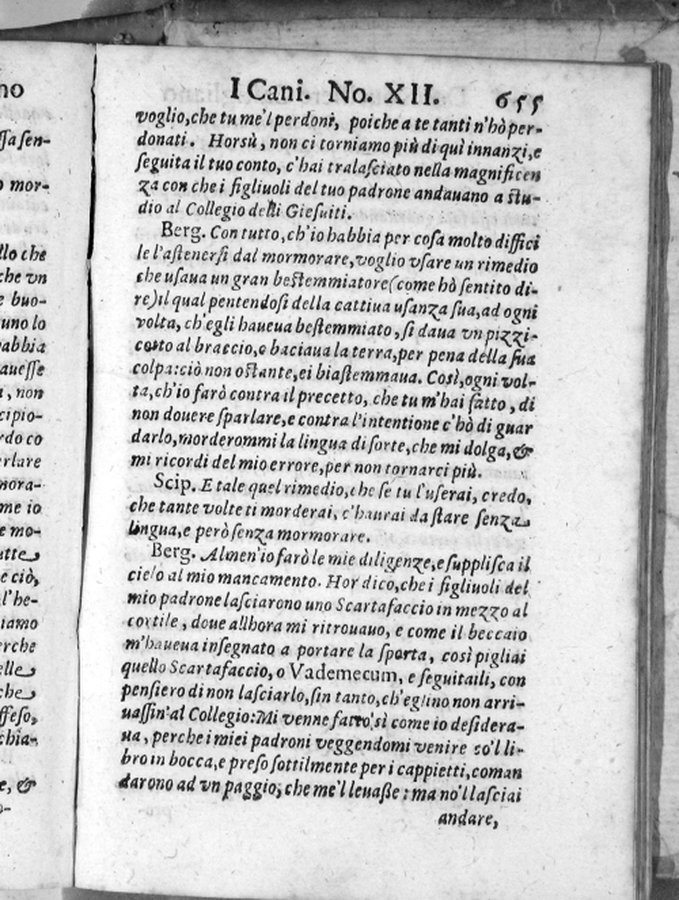 no
ssa sen-
o mor-
llo che
che vn
e buo-
uno lo
habbia
auesse
, non
cipio-
rdo co
erlare
mora-
me io
e mo-
utte
e ciò,
l'he-
iamo
erche
elle
che
ffeso,
chia-
e, &
I Cani. No. XII. 655
voglio, che tu me'l perdoni, poiche a te tanti n'hò per-
donati. Horsù, non ci torniamo più di quì innanzi, e
seguita il tuo conto, c'hai tralasciato nella magnificen
za con che i figliuoli del tuo padrone andauano a stu-
dio al Collegio delli Giesuiti.
Berg. Con tutto, ch'io habbia per cosa molto diffici
le l'astenersi dal mormorare, voglio vsare un rimedio
che usaua un gran bestemmiatore (come hò sentito di-
re) il qual pentendosi della cattiua usanza sua, ad ogni
volta, ch'egli haueua bestemmiato, si daua vn pizzi-
cotto al braccio, e baciaua la terra, per pena della sua
colpa: ciò non ostante, ei biastemmaua. Così, ogni vol-
ta, ch'io farò contra il precetto, che tu m'hai fatto, di
non douere sparlare, e contra l'intentione c'hò di guar
darlo, morderommi la lingua di sorte, che mi dolga, &
mi ricordi del mio errore, per non tornarci più.
Scip. E tale quel rimedio, che se tu l'userai, credo,
che tante volte ti morderai, c'haurai da stare senza
lingua, e però senza mormorare.
Berg. Almen'io farò le mie diligenze, e supplisca il
cielo al mio mancamento. Hor dico, che i figliuoli del
mio padrone lasciarono uno Scartafaccio in mezzo al
cortile, doue allhora mi ritrouauo, e come il beccaio
m'haueua insegnato a portare la sporta, così pigliai
quello Scartafaccio, o Vademecum, e seguitaili, con
pensiero di non lasciarlo, sin tanto, ch'eglino non arri-
uassin'al Collegio: Mi venne fatto sì come io desidera-
ua, perche i miei padroni veggendomi venire co'l li-
bro in bocca, e preso sottilmente per i cappietti, coman
darono ad vn paggio, che me'l leuasse: ma no'l lasciai
andare,